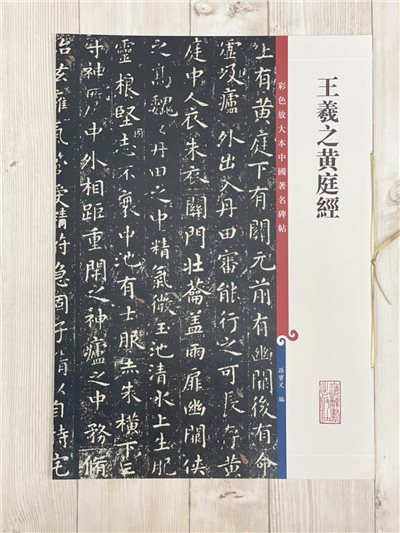 王羲之黄庭經
彩色放大本中國著名碑帖
孫寶文 編
上有黄庭下有關元前有幽闕後有命
嘘吸廬外出入丹田審能行之可長存黄
庭中人衣朱衣關門壯蘥蓋兩扉幽闕俠
之高巍巍丹田之中精氣微玉池清水上生肥
靈根堅志不衰中池有士服赤朱橫下三
寸神所居中外相距重閉之神廬之中務脩
治玄雍氣管受精符急固子精以自持宅